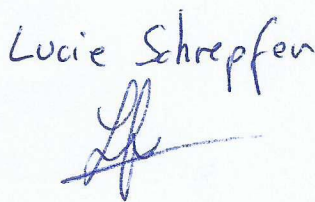 Lucie Schrepfer